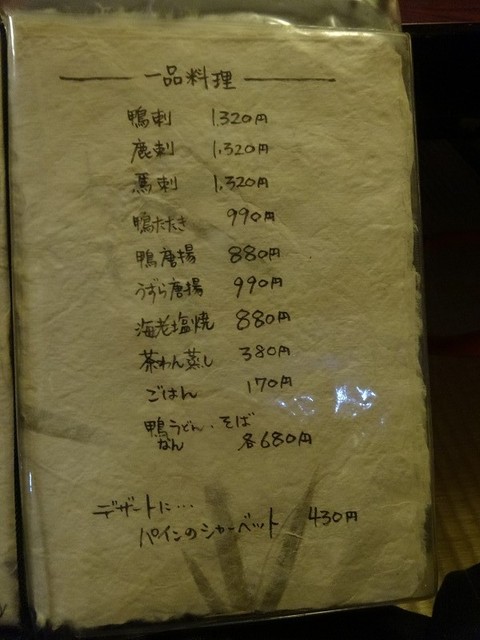 一品料理
鴨刺 1.320円
鹿刺 1.320円
馬刺 1.320円
鴨たたき 990円
鴨唐揚 880円
うずら唐揚 990円
海老塩焼 880円
茶わん蒸し 380円
ごはん 170円
鴨うどん・そば
なん 各680円
デザートに…
パインのシャーベット 430円